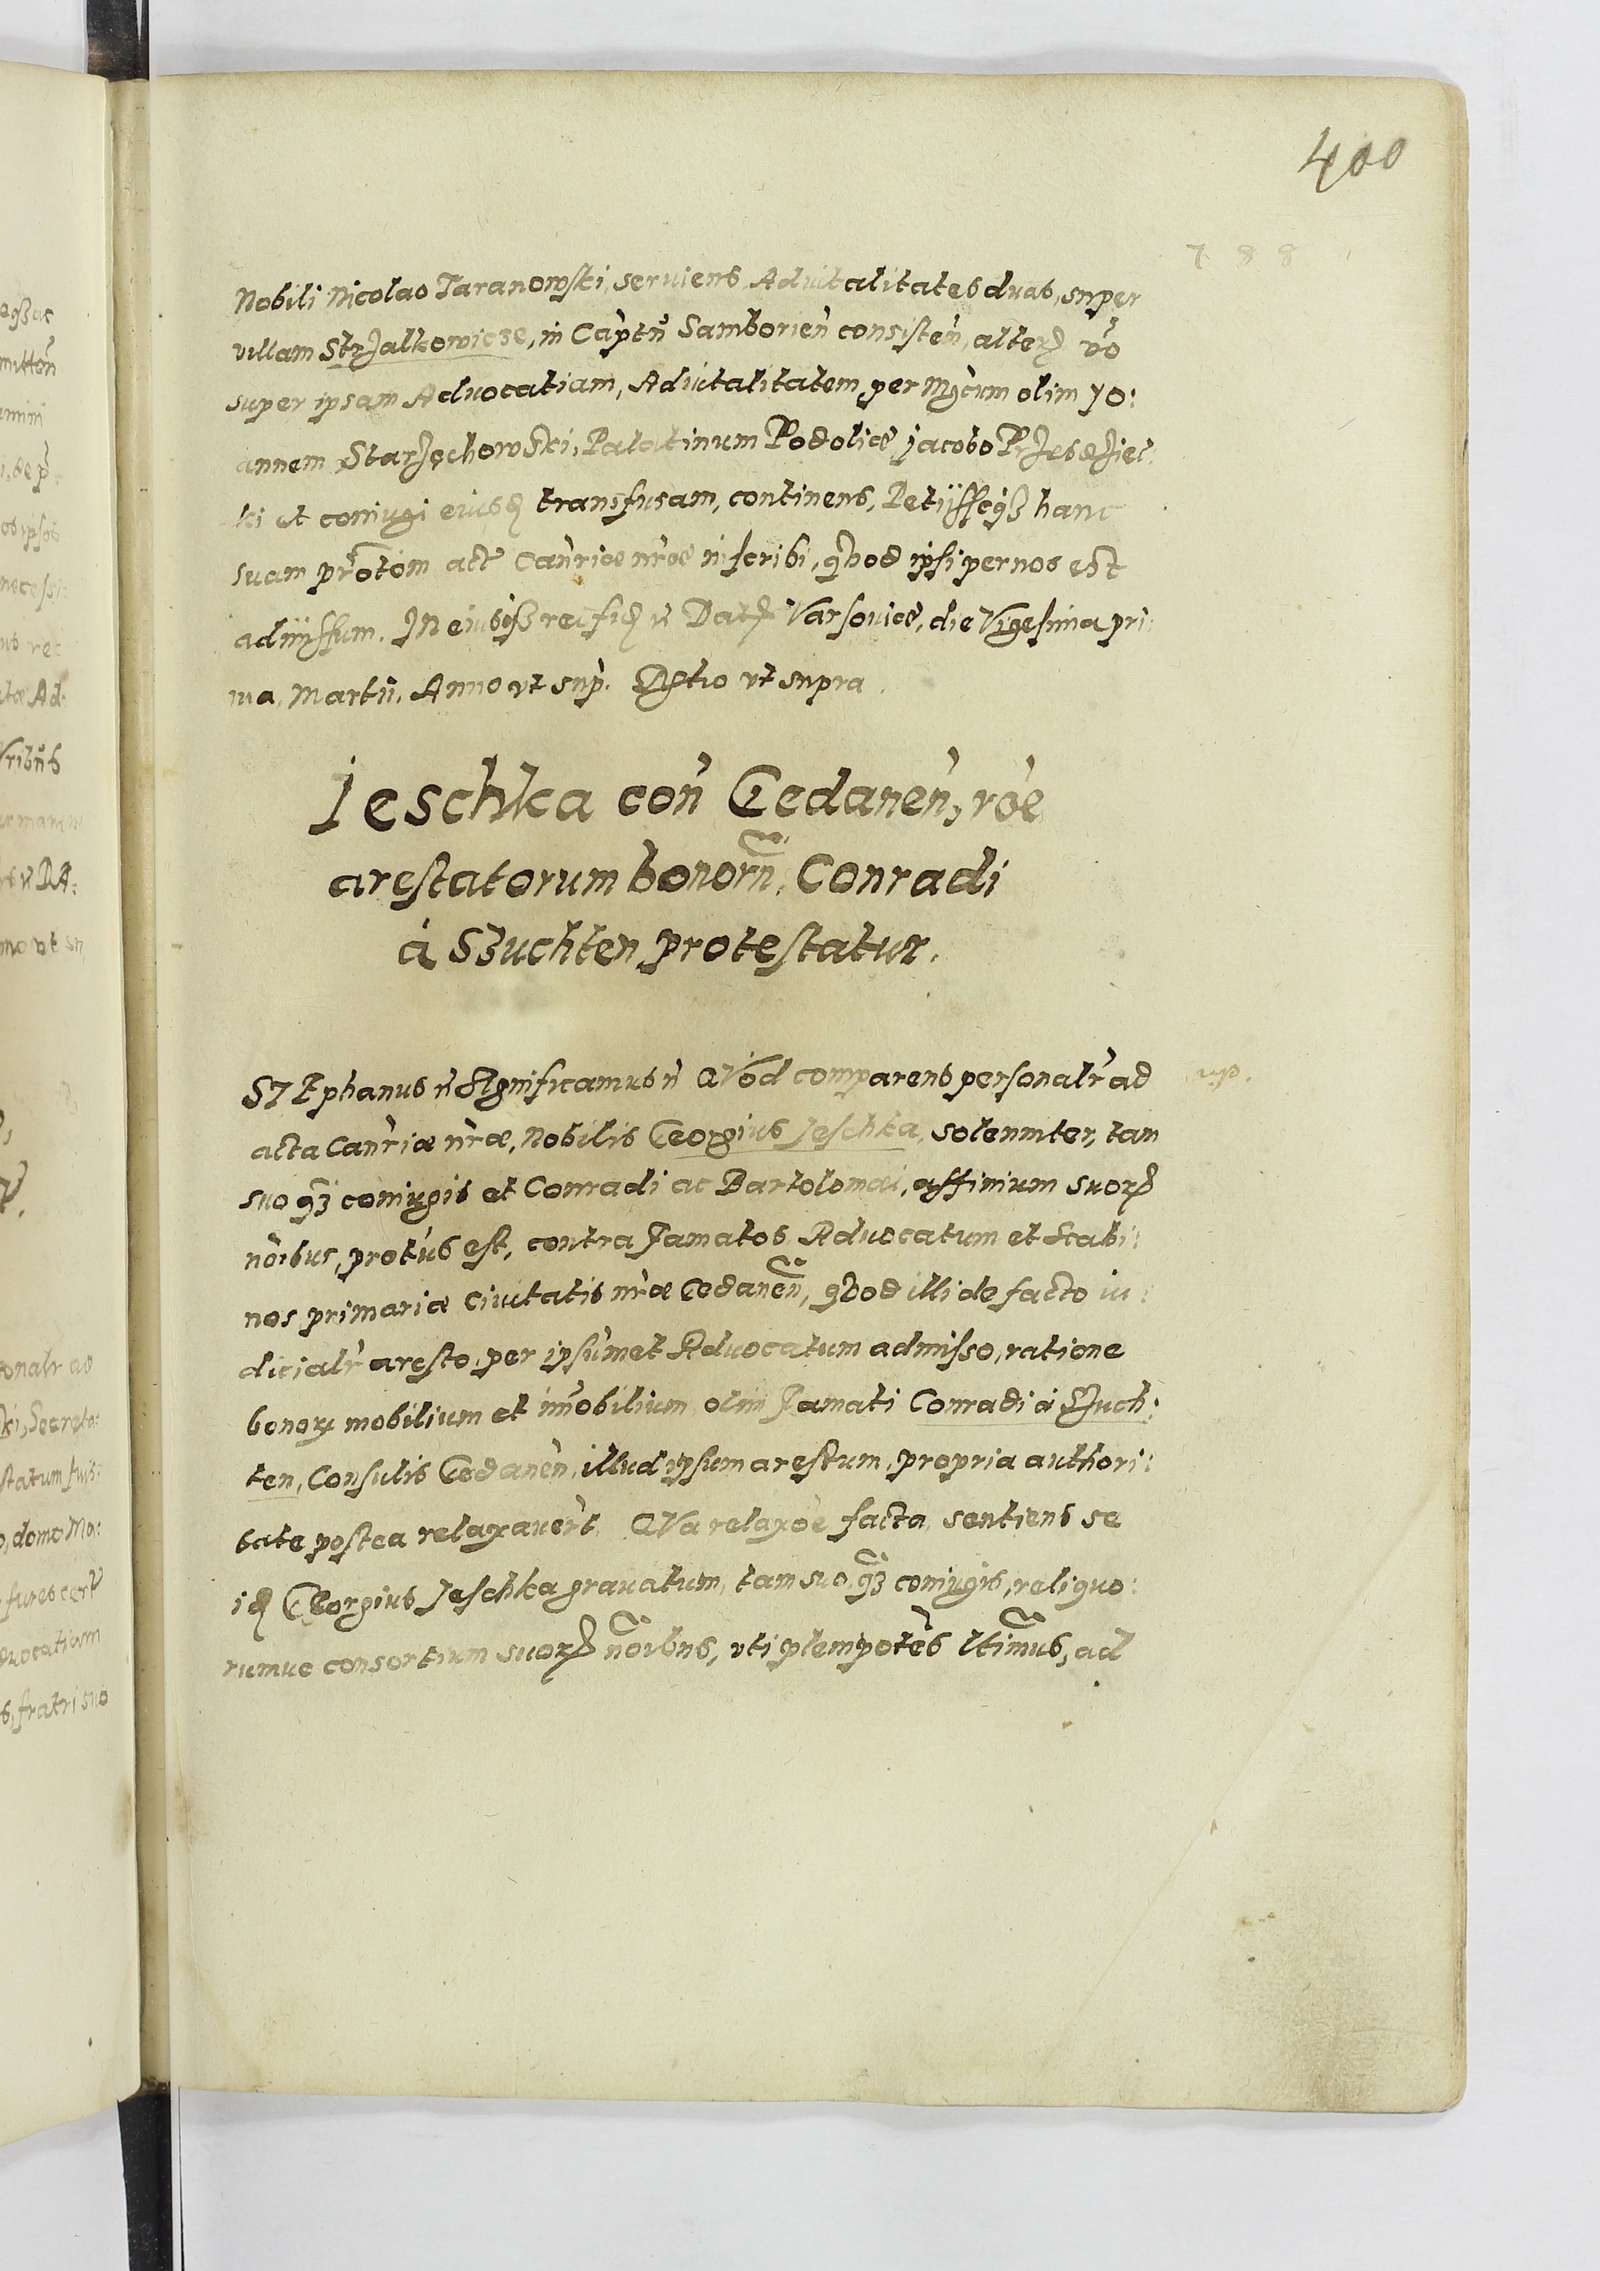 400
788
Nobili Nicolao Taranowski, seruiens Aduitalitates duas, super
villam Strzalkowicze, in Captn̄ Samborień consisteń, alterq vō
super ipsam Aduocatiam, Aduitalitatem per Mgcum olim Jo:
annem Starzechowski, Palatinum Podoliæ Jacobo Przebdzies:
ki et coniugi eiusq transfusam, continens, Petijsseqȝ hanc
suam protom actę Canriæ nræ inscribi, quod ipsi per nos est
admissum. In eiusqȝ rei fiq ñ Datę Varsouiæ, die Vigesima pri:
ma, Martii, Anno vt sup. Rgtio vt supra.
Jeschka coń Gedaneń, roe
arestatorum bonorn̄, Conradi
à Szuchten protestatur.
STEphanus ñ SIgnificamus ñ QVod comparens personalr ad
acta Canriæ nræ, Nobilis Georgius Jeschka, solenniter, tam
suo qȝ coniugis et Conradi ac Bartolomæi, affinium suorꝝ
noibus, protus est, contra famatos Aduocatum et Scabi:
nos primariæ Ciuitatis nræ Gedanen̄, quod illi de facto iu:
dicialr aresto, per ipsumet Aduocatum admisso, ratione
bonoꝝ mobilium et imobilium olim famati Conradi à Szuch:
ten, Consulis Gedaneń, illud ipsum arestum, propria authori:
tate postea relaxauert. QVa relaxoe facta, sentiens se
iq Georgius Jeschka grauatum, tam suo, qȝ coniugis, reliquo:
rumue consortium suorꝝ noibus, vti plenipotes ltimus, ad